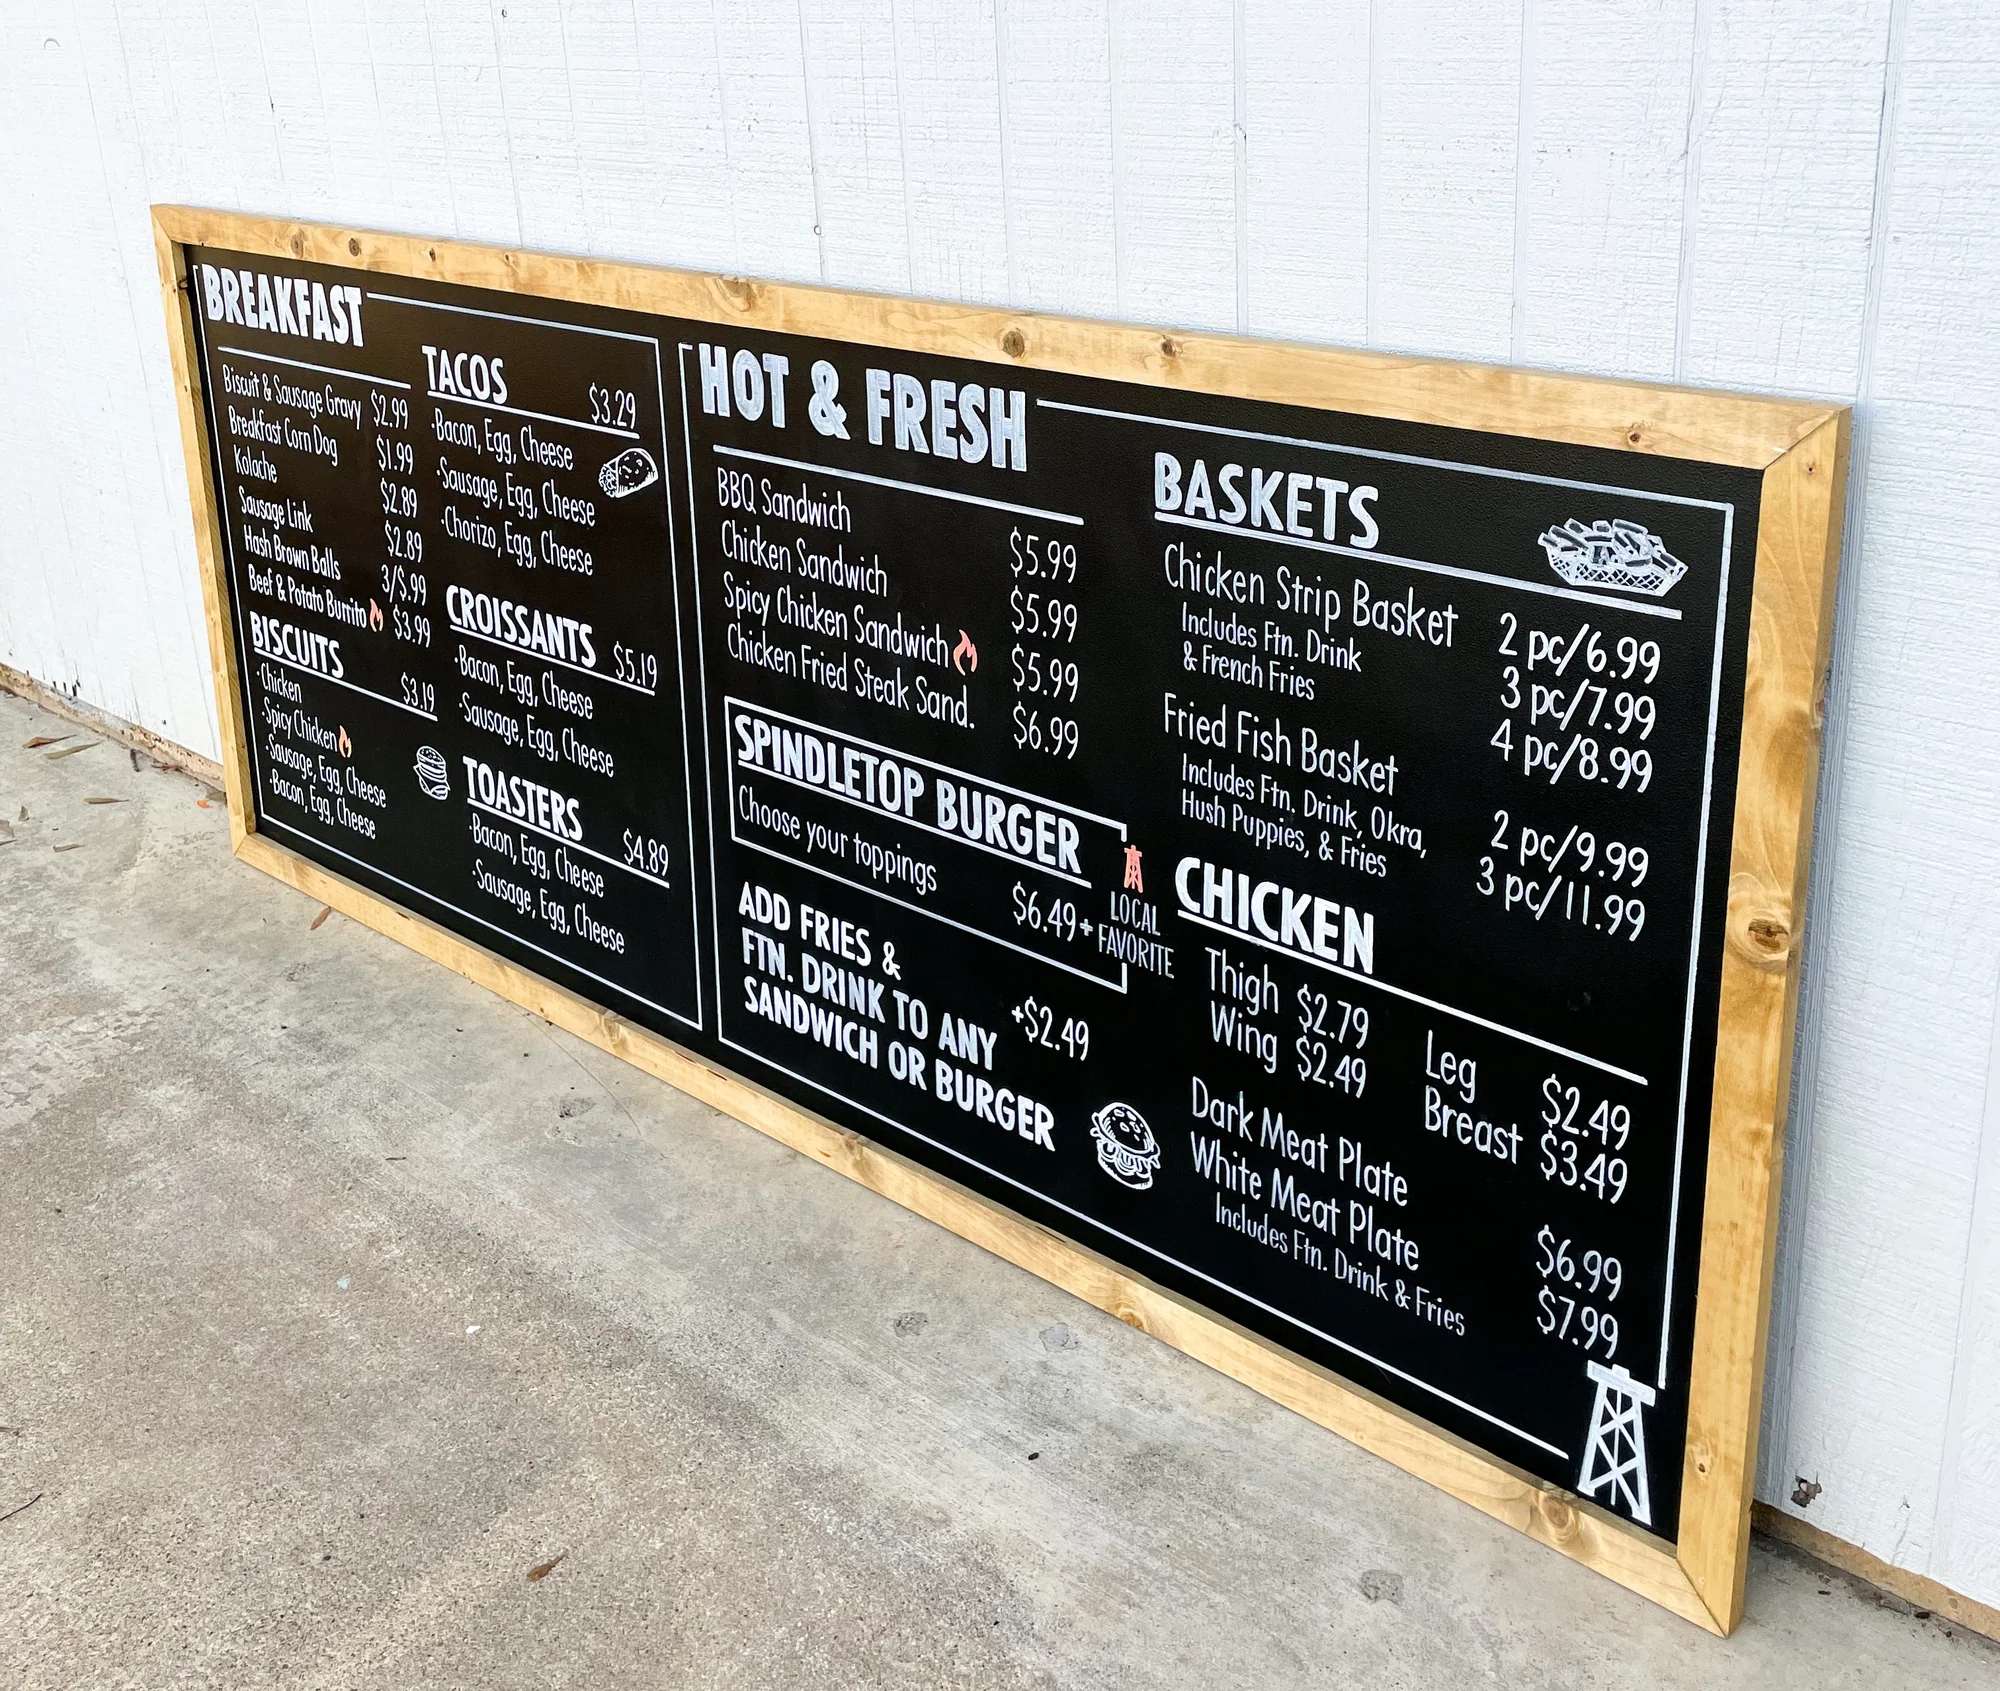 BREAKFAST
Biscuit & Sausage Gravy $2.99
Breakfast Corn Dog $1.99
Kolache $2.89
Sausage Link $2.89
Hash Brown Balls 3/$.99
Beef & Potato Burrito $3.99
BISCUITS $3.19
·Chicken
·Spicy Chicken
·Sausage, Egg, Cheese
·Bacon, Egg, Cheese
TACOS $3.29
·Bacon, Egg, Cheese
·Sausage, Egg, Cheese
·Chorizo, Egg, Cheese
CROISSANTS $5.19
·Bacon, Egg, Cheese
·Sausage, Egg, Cheese
TOASTERS $4.89
·Bacon, Egg, Cheese
·Sausage, Egg, Cheese
HOT & FRESH
BBQ Sandwich $5.99
Chicken Sandwich $5.99
Spicy Chicken Sandwich $5.99
Chicken Fried Steak Sand. $6.99
SPINDLETOP BURGER
Choose your toppings $6.49+
LOCAL
FAVORITE
ADD FRIES &
FTN. DRINK TO ANY +$2.49
SANDWICH OR BURGER
BASKETS
Chicken Strip Basket 2 pc/6.99
Includes Ftn. Drink 3 pc/7.99
& French Fries 4 pc/8.99
Fried Fish Basket
Includes Ftn. Drink, Okra, 2 pc/9.99
Hush Puppies, & Fries 3 pc/11.99
CHICKEN
Thigh $2.79 Leg $2.49
Wing $2.49 Breast $3.49
Dark Meat Plate $6.99
White Meat Plate $7.99
Includes Ftn. Drink & Fries